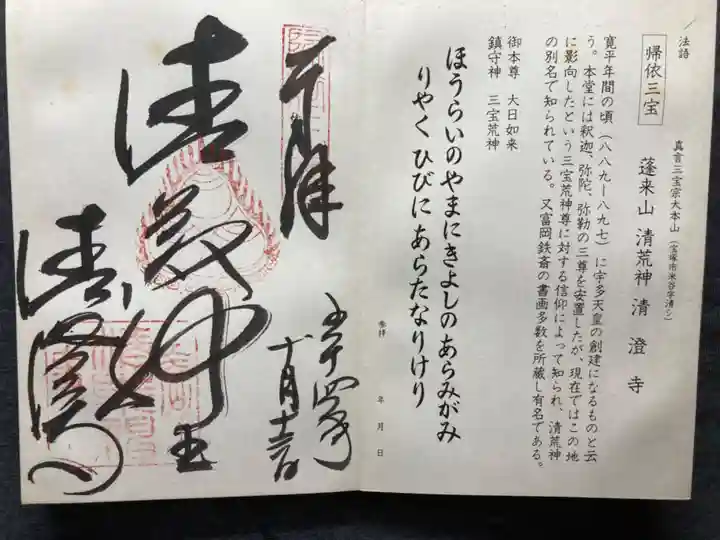 法語
帰依三宝
真言三宝宗大本山(宝塚市米谷字清シ)
蓬来山 清荒神 清澄寺
寛平年間の頃(八八九ー八九七)に宇多天皇の創建になるものと云
う。本堂には釈迦、弥陀、弥勒の三尊を安置したが、現在ではこの地
に影向したという三宝荒神尊に対する信仰によって知られ、清荒神
の別名で知られている。又富岡鉄斎の書画多数を所蔵し有名である。
御本尊 大日如来
鎮守神 三宝荒神
ほうらいのやまにきよしのあらみがみ
りやく ひびに あらたなりけり
参拝 年 月 日
五十四年
奉拝
清荒神王
清澄寺